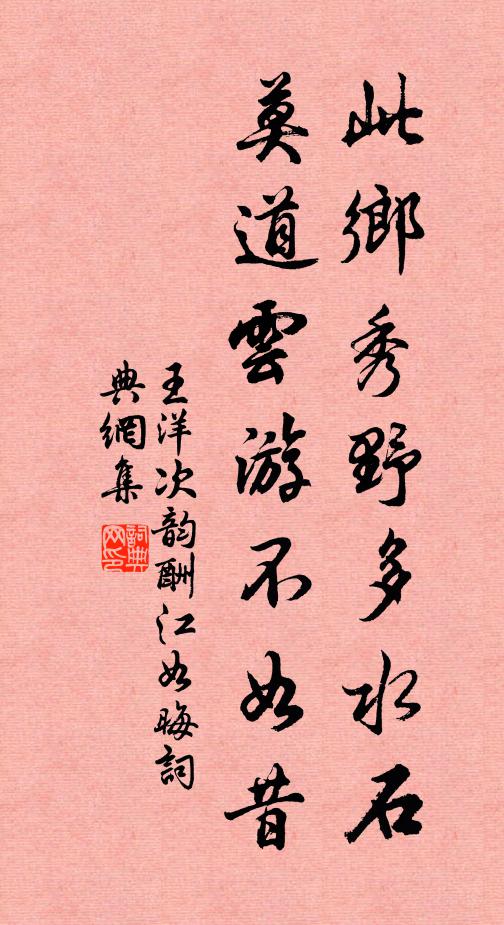 此鄉秀野多水石
莫道雲游不如昔
王洋次韵酬江如晦詞
典網集
詞典
网印